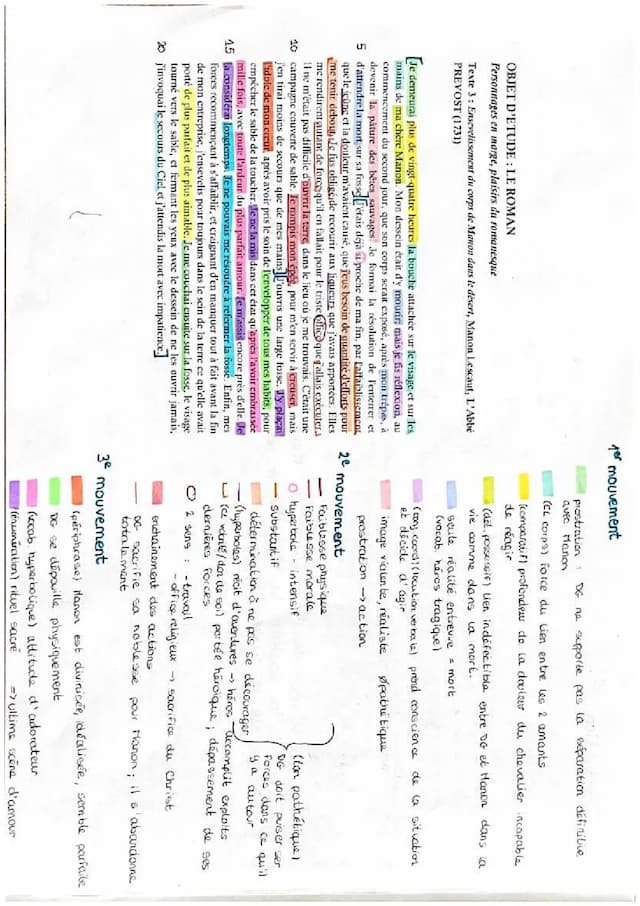 OBJET D'ETUDE : LE ROMAN
Personnages en marge, plaisirs du romanesque
Texte 3 : Ensevelissement du corps de Manon dans le désert, Manon Lescaut, L'Abbé
PREVOST (1731)
Je demeurai plus de vingt-quatre heures la bouche attachée sur le visage et sur les
mains de ma chère Manon. Mon dessein était d'y mourir; mais je fis réflexion, au
commencement du second jour, que son corps serait exposé, après mon trépas, à
devenir la pâture des bêtes sauvages. Je formai la résolution de l'enterrer et
5 d'attendre la mort sur sa fosse. J'étais déjà si proche de ma fin, par l'affaiblissement
que le jeûne et la douleur m'avaient causé, que j'eus besoin de quantité d'efforts pour
me tenir debout. Je fus obligé de recourir aux liqueurs que j'avais apportées. Elles
me rendirent autant de force qu'il en fallait pour le triste office que j'allais exécuter.
Il ne m'était pas difficile d'ouvrir la terre, dans le lieu où je me trouvais. C'était une
10 campagne couverte de sable. Je rompis mon épée, pour m'en servir à creuser, mais
j'en tirai moins de secours que de mes mains. J'ouvris une large fosse. J'y plaçai
l'idole de mon cœur, après avoir pris le soin de l'envelopper de tous mes habits, pour
empêcher le sable de la toucher. Je ne la mis dans cet état qu'après l'avoir embrassée
mille fois, avec toute l'ardeur du plus parfait amour. Je m'assis encore près d'elle. Je
15 la considérai longtemps. Je ne pouvais me résoudre à refermer la fosse. Enfin, mes
forces recommençant à s'affaiblir, et craignant d'en manquer tout à fait avant la fin
de mon entreprise, j'ensevelis pour toujours dans le sein de la terre ce qu'elle avait
porté de plus parfait et de plus aimable. Je me couchai ensuite sur la fosse, le visage
tourné vers le sable, et fermant les yeux avec le dessein de ne les ouvrir jamais,
20 j'invoquai le secours du Ciel, et j'attendis la mort avec impatience.
1er mouvement
prostration : DG ne supporte pas la séparation définitive
avec Manon
(CL corps) force du lien entre les 2 amants
(comparatif) profondeur de la douleur du chevalier incapable
de réagir
(dét. possessif) lien indéfectible entre DG et Manon dans la
vie comme dans la mort.
seule réalité entrevue = mort
(vocab héros tragique)
(conj coord) (locution verbale) prend conscience de la situation
et décide d'agir
image violente, réaliste pathétique
prostration → action
2e mouvement
faiblesse physique
faiblesse morale
(ton pathétique)
hyperbole - intensif
substantif
DG doit puiser ses
forces dans ce qu'il
y a autour
détermination à ne pas se décourager
(hyperboles) récit d'aventures → héros accomplit exploits
(CL vaillé / don de soi) portée héroïque ; dépassement de ses
dernières forces
2 sens : - travail
- office religieux → sacrifice du Christ
enchaînement des actions
DG sacrifie sa noblesse pour Manon ; il s'abandonne
totalement
3e mouvement
(périphrase) Manon est divinisée, idéalisée, semble parfaite
DG se dépouille physiquement
(vocab hyperbolique) attitude d'adorateur
(énumération) rituel sacré ⇒ ultime scène d'amour